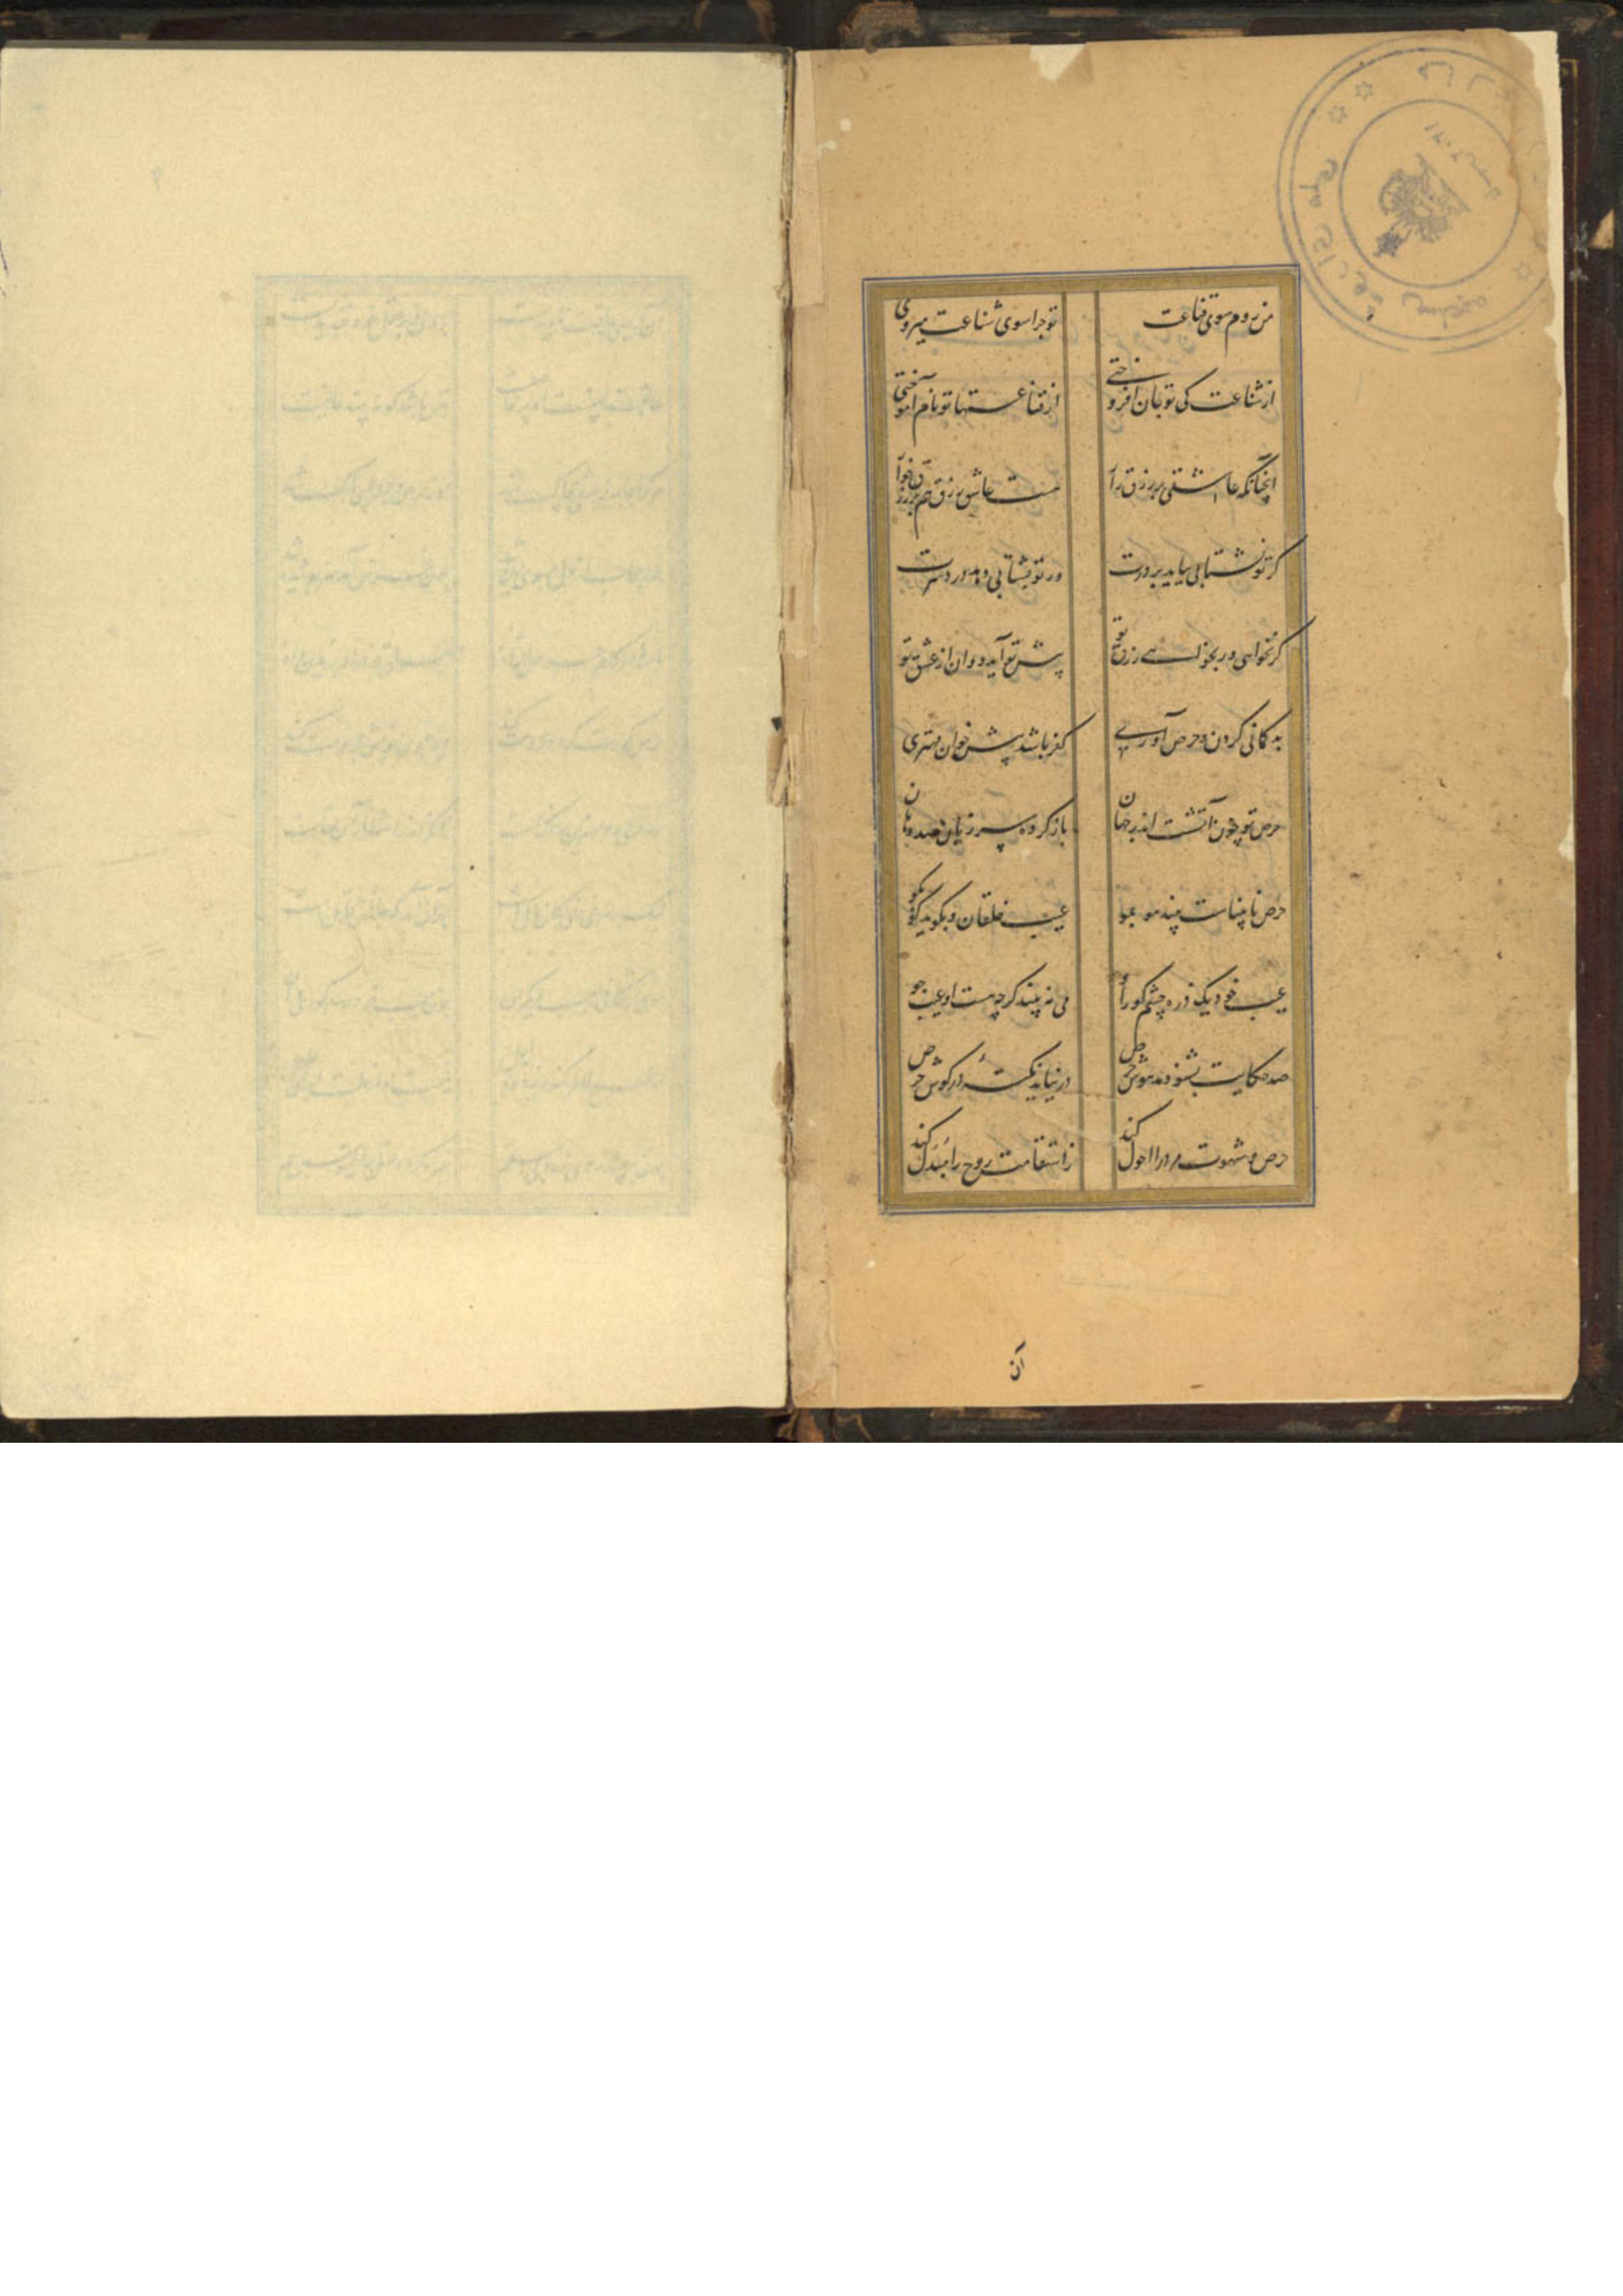 من روم سوی قناعت تو چرا سوی شناعت میروی
از شناعت کی تو جان افروختی از قناعتها تو نام آموختی
آنچنانکه عاشقی بر رزق زار هست عاشق رزق هم بر رزق خوار
گر تو نشتابی بیاید بر درت ور تو بشتابی دهد دردسرت
گر نخواهی ور بخواهی رزق تو پیش تو آید دوان از عشق تو
بدگمانی کردن و حرص آوری کفر باشد پیش خوان مهتری
حرص تو چون آتشست اندر جهان باز کرده هر زبان صد دهان
حرص نابیناست بیند مو بمو عیب خلقان و بگوید کو بکو
عیب خود یک ذره چشم کور او می نه بیند گرچه هست او عیب جو
صد حکایت بشنود مدهوش حرص در نیاید نکتهٔ در گوش حرص
حرص و شهوت مرد را احول کند ز استقامت روح را مبدل کند
آن